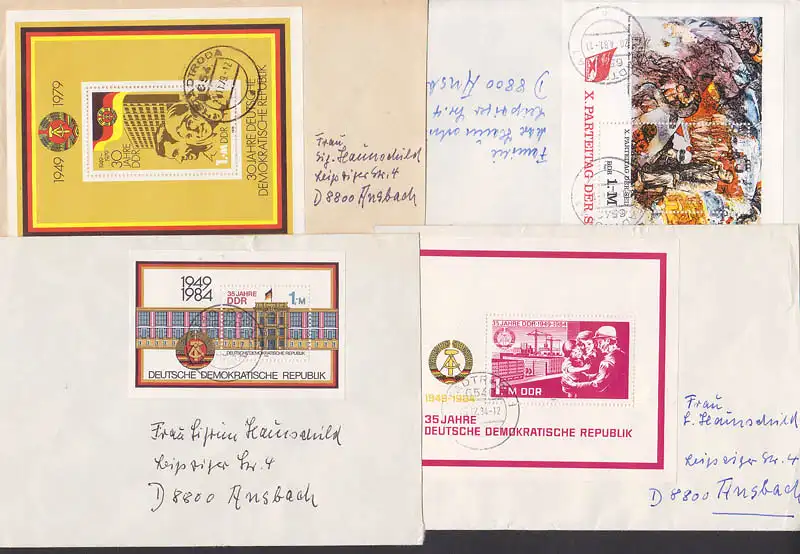 1949 1979
30 JAHRE DEUTSCHE
DEMOKRATISCHE REPUBLIK
30
JAHRE
DDR
1.M DDR
654
Frau
Sig. Haunschild
Leipziger Str. 4
D 8800 Ansbach
Familie
Haunschild
Leipziger Str. 4
D 8800 Ansb
X. PARTEITAG DER S
X. PARTEITAG DER SED
DDR 1.-M
1949
1984
35 JAHRE
DDR
1.-M
DEUTSCHE DEMOKRATISCHE REPUBLIK
DEUTSCHE DEMOKRATISCHE REPUBLIK
Frau
Haunschild
Leipziger Str. 4
D 8800 Ansbach
35 JAHRE DDR · 1949-1984
1.-M DDR
1949-1984
35 JAHRE
DEUTSCHE DEMOKRATISCHE REPUBLIK
654
Frau
S. Haunschild
Leipziger Str. 4
D 8800 Ansbach